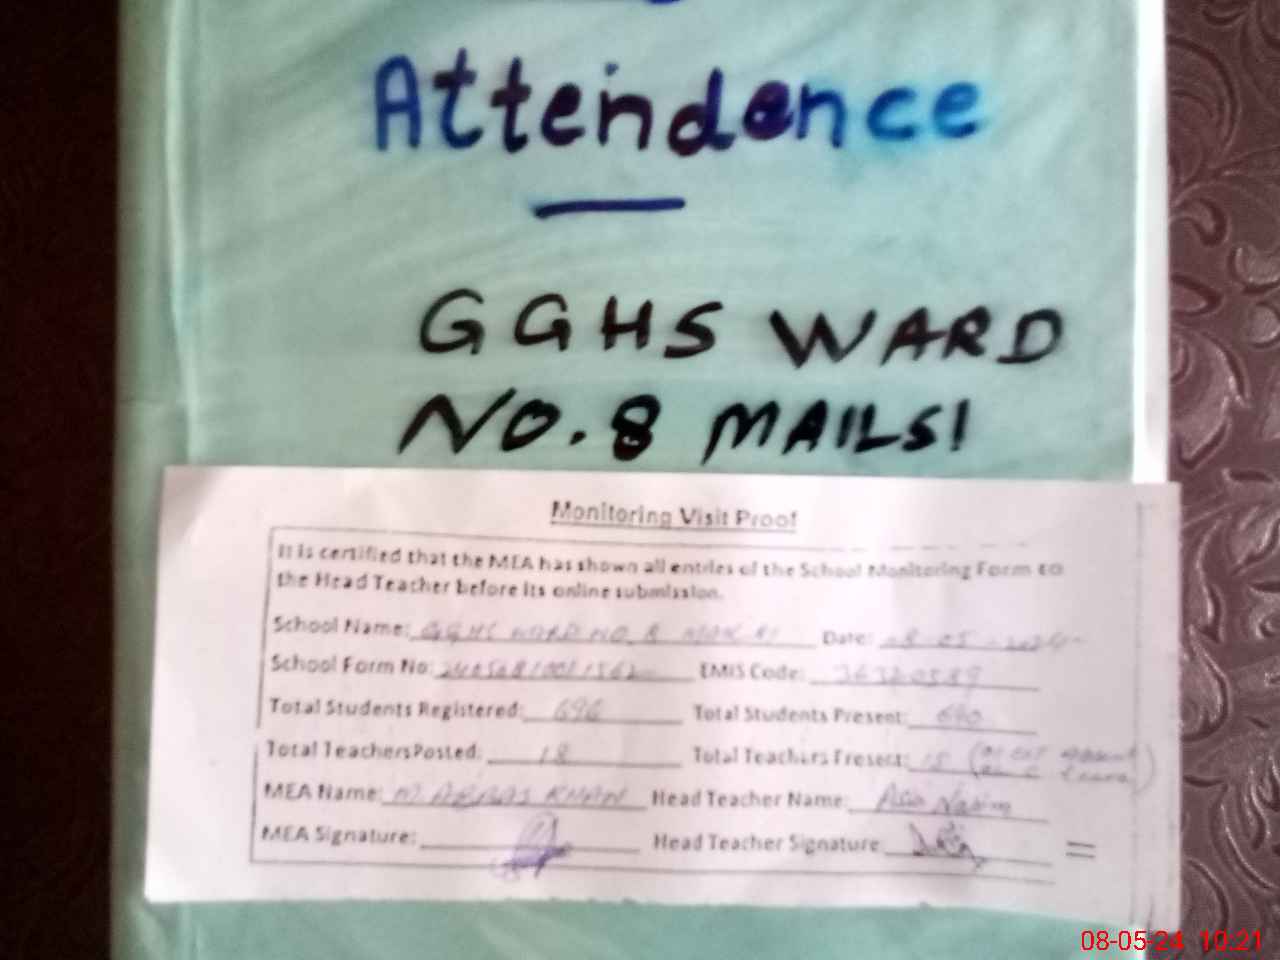 Attendence
GGHS WARD
NO. 8 MAILSI
Monitoring Visit Proof
It is certified that the MEA has shown all entries of the School Monitoring Form to
the Head Teacher before its online submission.
School Name: GGHS WARD NO 8 Date: 08-05-2024
School Form No: EMIS Code: 36320589
Total Students Registered: 696 Total Students Present: 640
Total Teachers Posted: 18 Total Teachers Present: 15
MEA Name: M ABBAS KHAN Head Teacher Name:
MEA Signature: Head Teacher Signature
08-05-24 10:21